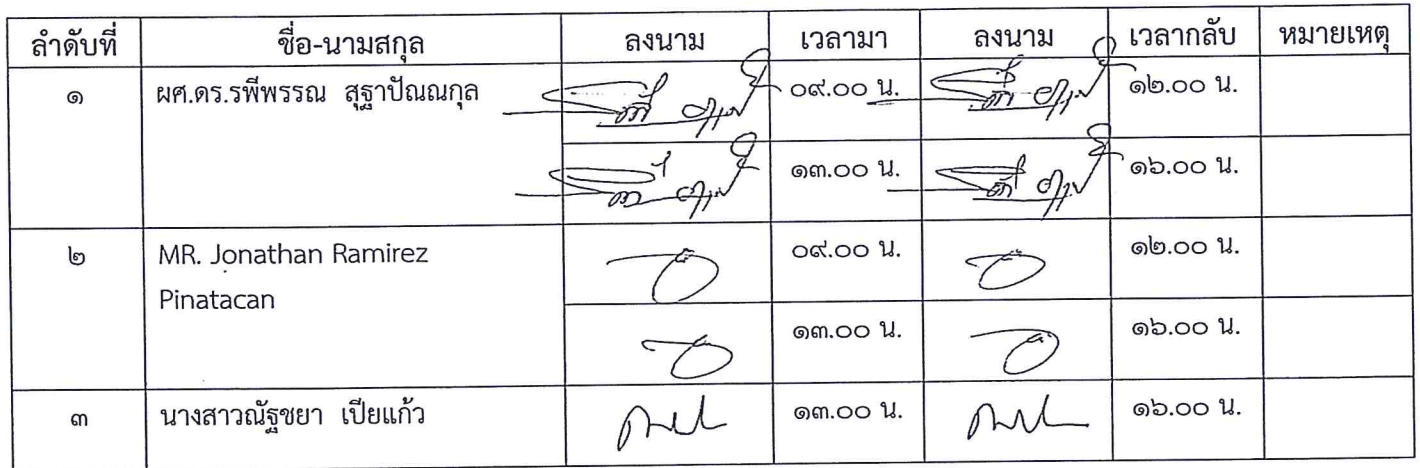 ลำดับที่ ชื่อ-นามสกุล ลงนาม เวลามา ลงนาม เวลากลับ หมายเหตุ
๑ ผศ.ดร.รพีพรรณ สุฐาปัณณกุล ๐๙.๐๐ น. ๑๒.๐๐ น.
๑๓.๐๐ น. ๑๖.๐๐ น.
๒ MR. Jonathan Ramirez ๐๙.๐๐ น. ๑๒.๐๐ น.
Pinatacan
๑๓.๐๐ น. ๑๖.๐๐ น.
๓ นางสาวณัฐชยา เปียแก้ว ๑๓.๐๐ น. ๑๖.๐๐ น.